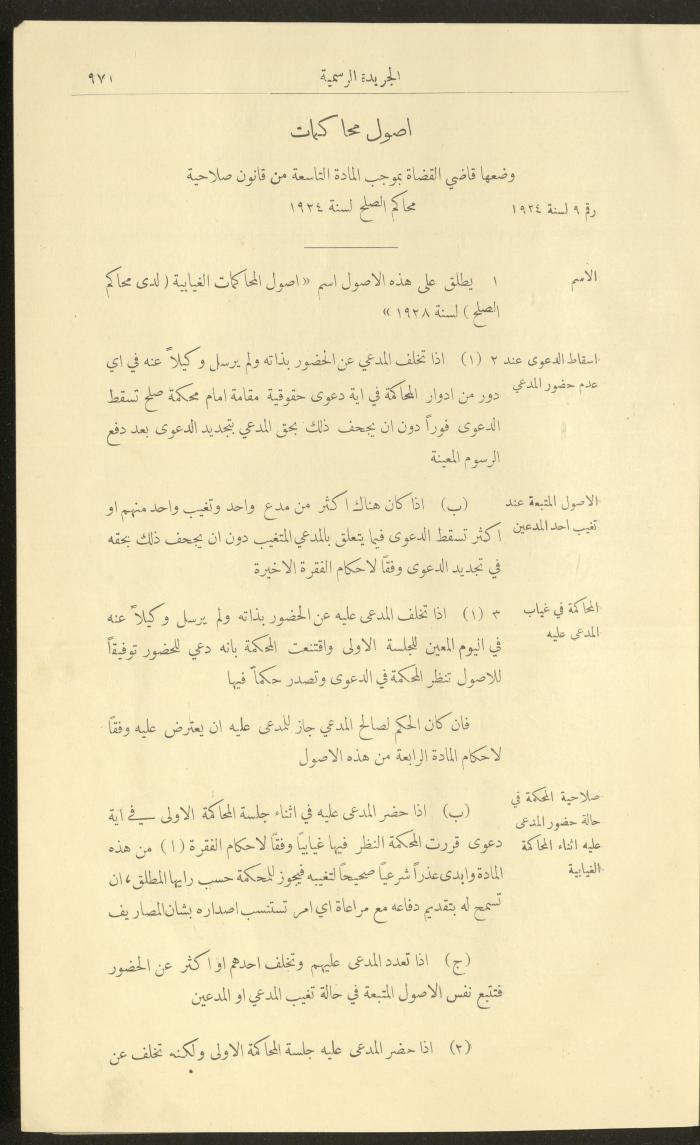 الجريدة الرسمية ٩٧١
اصول محاكمات
وضعها قاضي القضاة بموجب المادة التاسعة من قانون صلاحية
رقم ٩ لسنة ١٩٢٤ محاكم الصلح لسنة ١٩٢٤
الاسم ١ يطلق على هذه الاصول اسم « اصول المحاكمات الغيابية ( لدى محاكم
الصلح ) لسنة ١٩٢٨ »
اسقاط الدعوى عند ٢ (١) اذا تخلف المدعي عن الحضور بذاته ولم يرسل وكيلاً عنه في اي
عدم حضور المدعي دور من ادوار المحاكمة في اية دعوى حقوقية مقامة امام محكمة صلح تسقط
الدعوى فوراً دون ان يجحف ذلك بحق المدعي بتجديد الدعوى بعد دفع
الرسوم المعينة
الاصول المتبعة عند (ب) اذا كان هناك اكثر من مدع واحد وتغيب واحد منهم او
تغيب احد المدعين اكثر تسقط الدعوى فيما يتعلق بالمدعي المتغيب دون ان يجحف ذلك بحقه
في تجديد الدعوى وفقاً لاحكام الفقرة الاخيرة
المحاكمة في غياب ٣ (١) اذا تخلف المدعى عليه عن الحضور بذاته ولم يرسل وكيلاً عنه
المدعى عليه في اليوم المعين للجلسة الاولى واقتنعت المحكمة بانه دعي للحضور توفيقاً
للاصول تنظر المحكمة في الدعوى وتصدر حكماً فيها
فان كان الحكم لصالح المدعي جاز للمدعى عليه ان يعترض عليه وفقاً
لاحكام المادة الرابعة من هذه الاصول
صلاحية المحكمة في (ب) اذا حضر المدعى عليه في اثناء جلسة المحاكمة الاولى في اية
حالة حضور المدعى دعوى قررت المحكمة النظر فيها غيابياً وفقاً لاحكام الفقرة (١) من هذه
عليه اثناء المحاكمة المادة وابدى عذراً شرعياً صحيحاً لتغيبه فيجوز للمحكمة حسب رايها المطلق، ان
الغيابية تسمح له بتقديم دفاعه مع مراعاة اي امر تستنسب اصداره بشان المصاريف
(ج) اذا تعدد المدعى عليهم وتخلف احدهم او اكثر عن الحضور
فتتبع نفس الاصول المتبعة في حالة تغيب المدعي او المدعين
(٢) اذا حضر المدعى عليه جلسة المحاكمة الاولى ولكنه تخلف عن